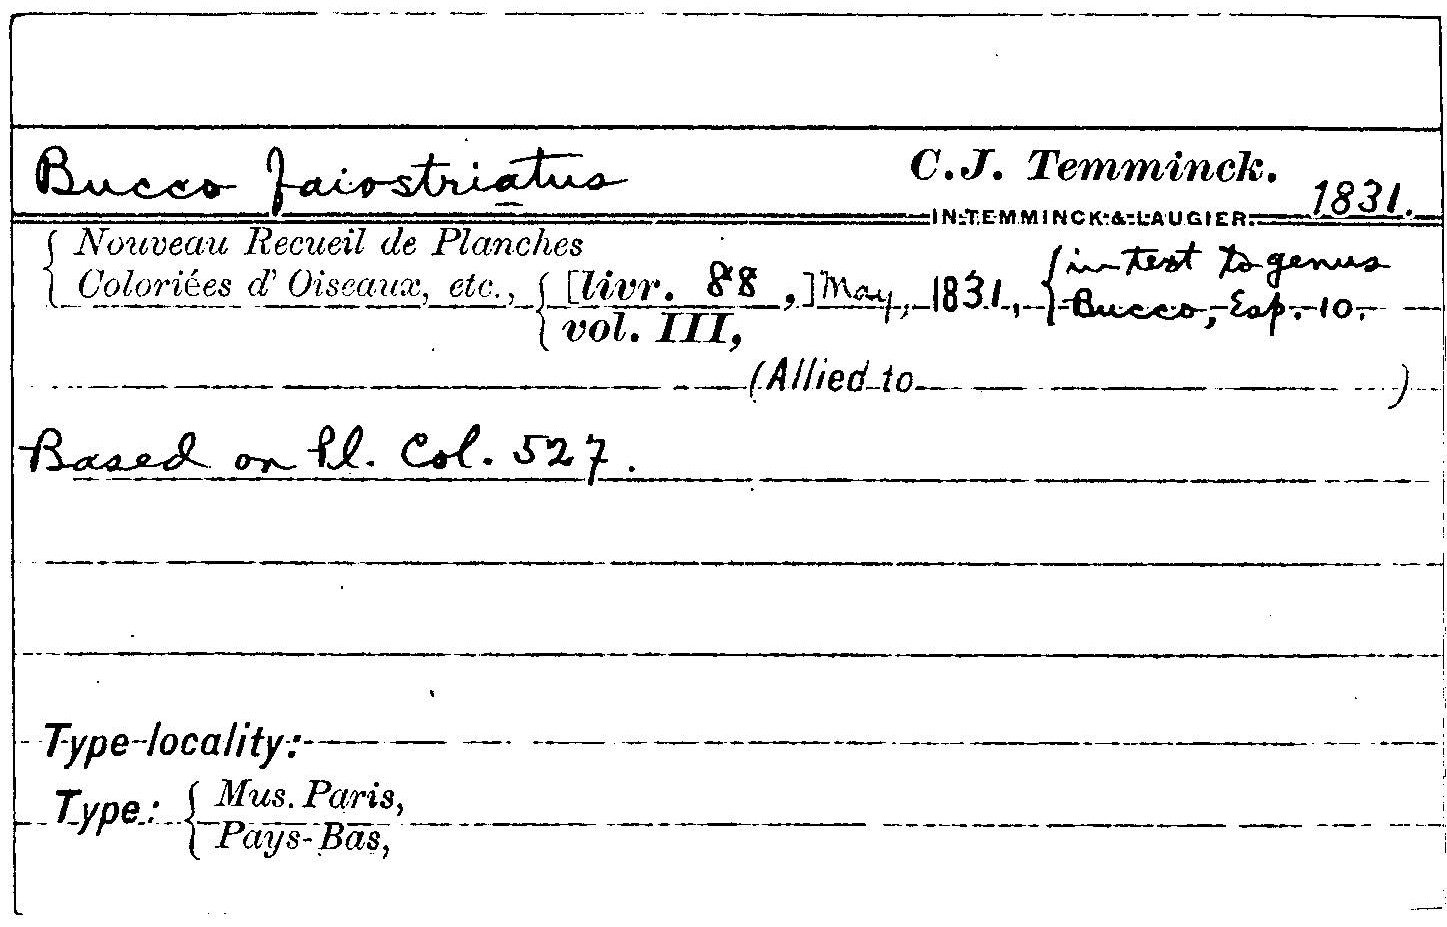 Bucco faiostriatus C. J. Temminck. 1831.
IN TEMMINCK & LAUGIER.
Nouveau Recueil de Planches
Coloriées d' Oiseaux, etc., [livr. 88,] May, 1831, in text to genus
vol. III, Bucco, Esp. 10.
(Allied to )
Based on Pl. Col. 527.
Type locality:
Type: Mus. Paris,
Pays-Bas,